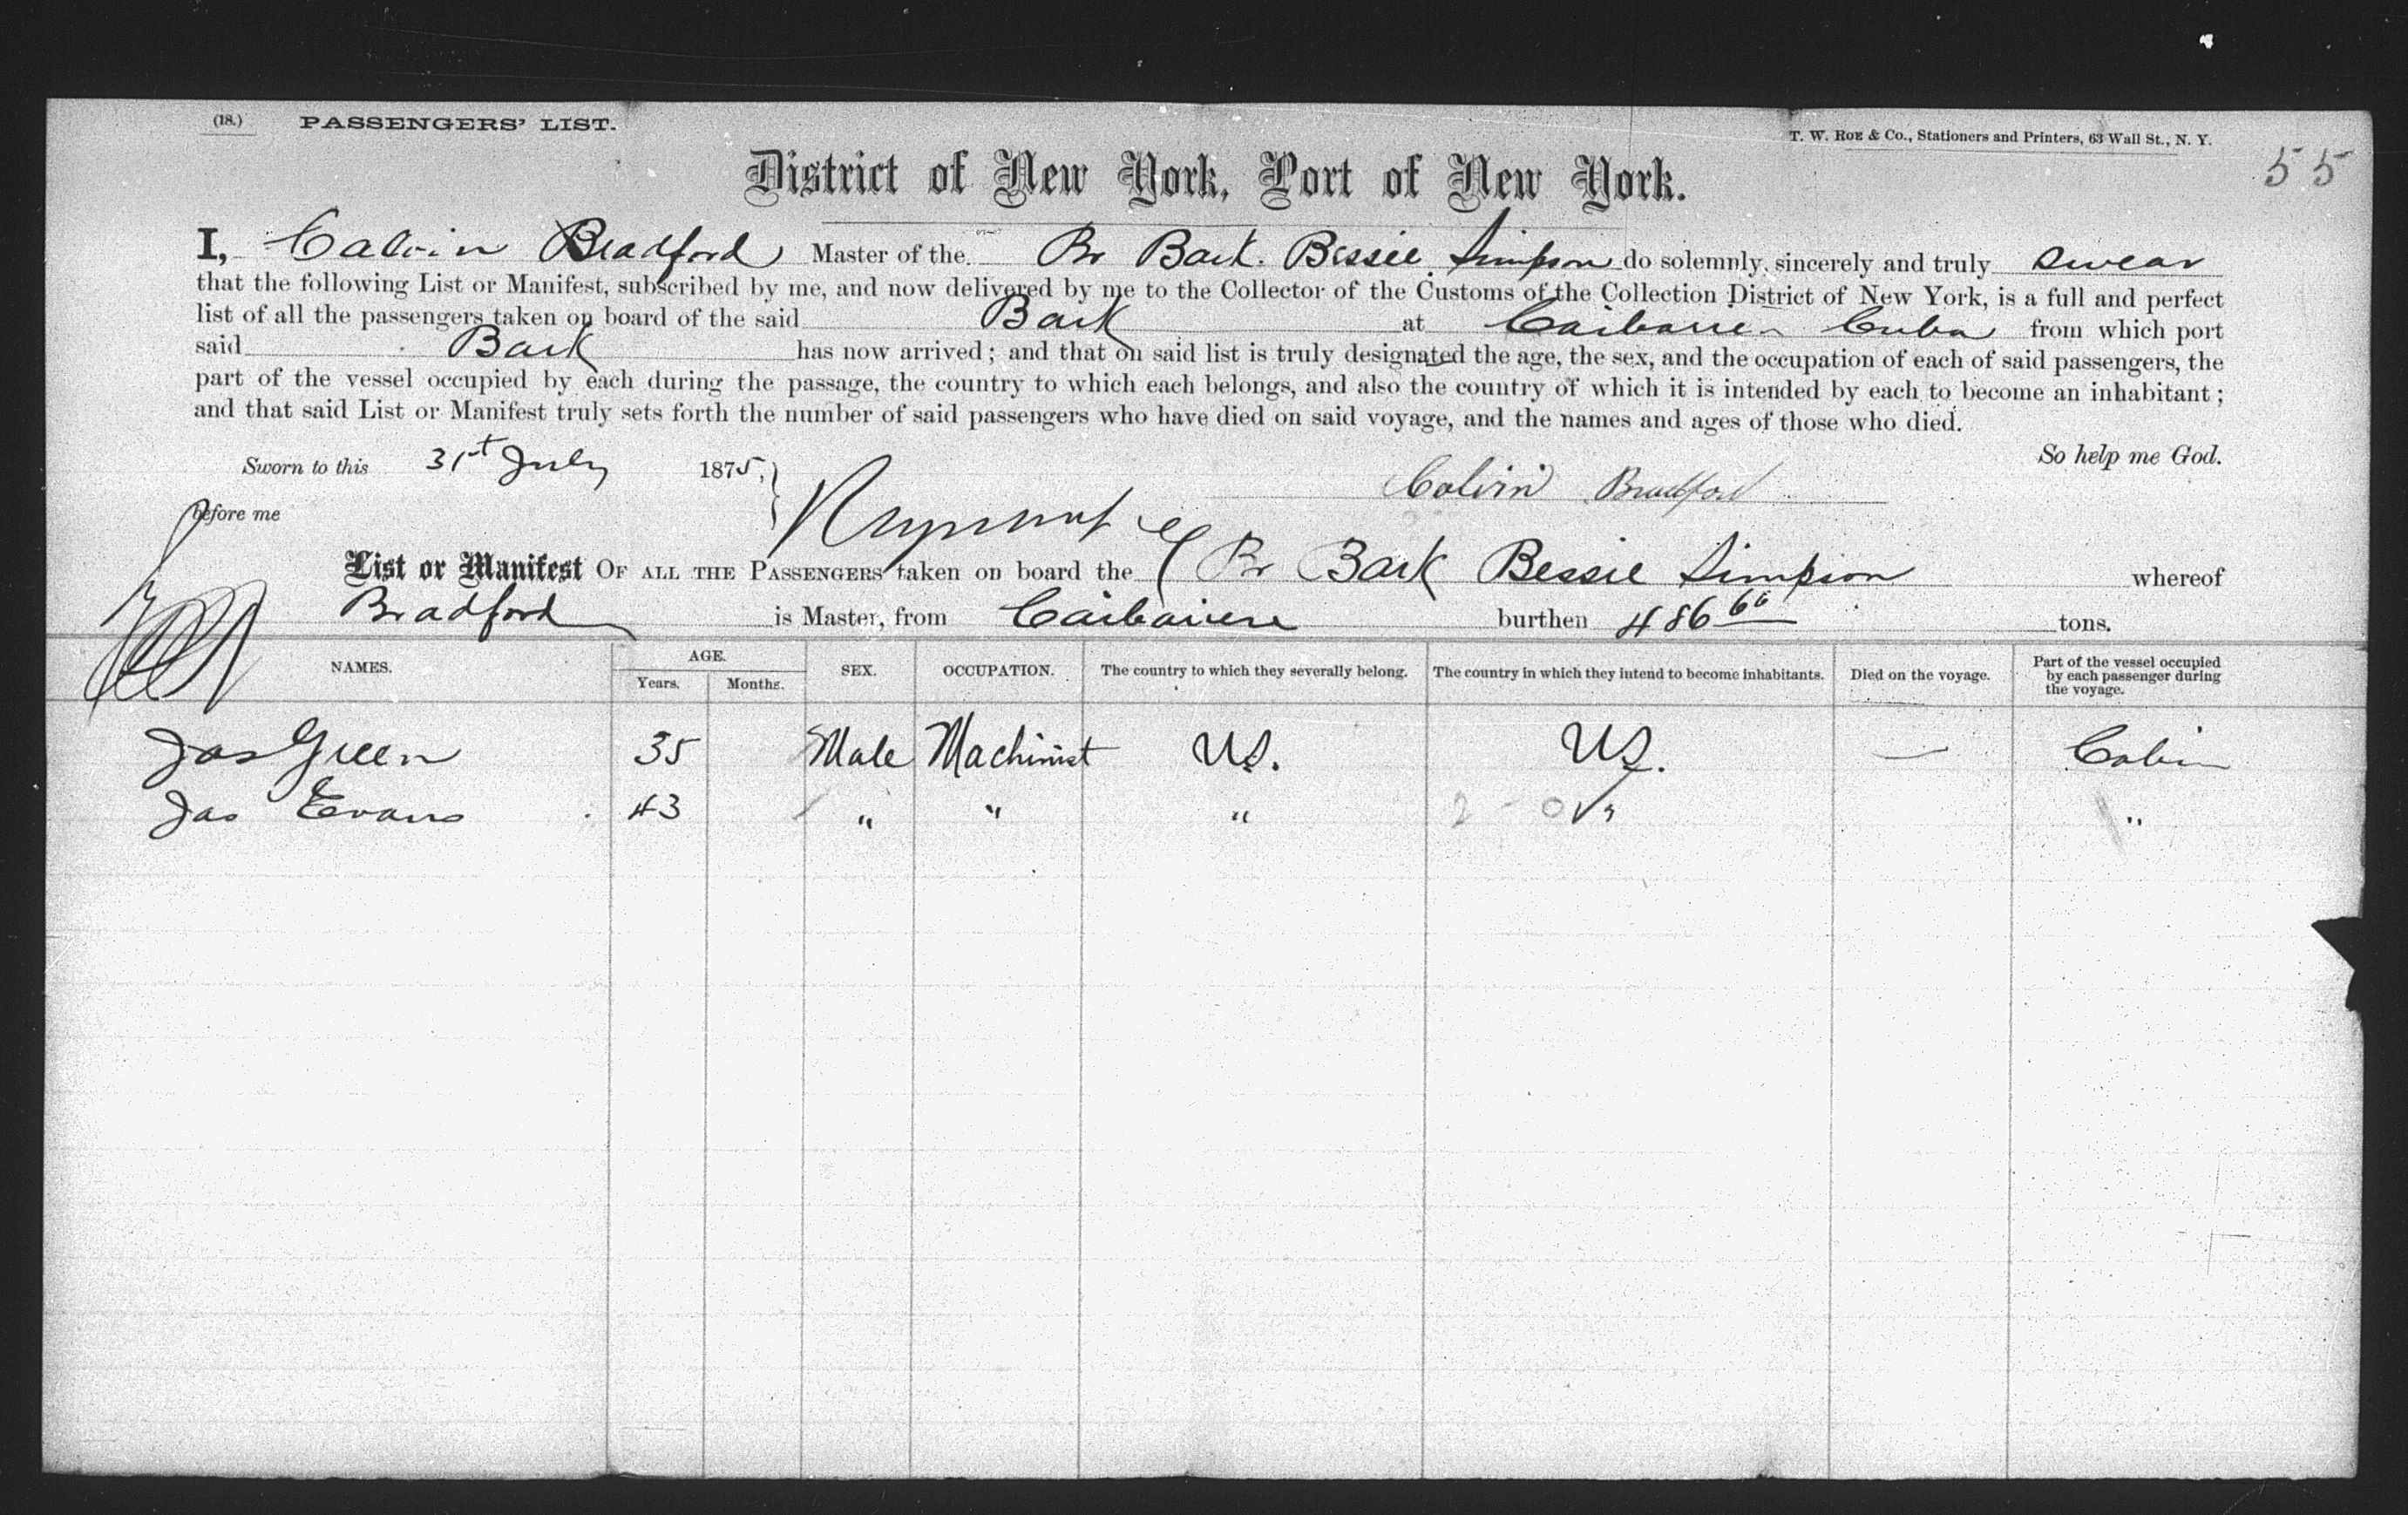 (18.) PASSENGERS' LIST.
T. W. ROE & Co., Stationers and Printers, 63 Wall St., N. Y.
55
District of New York, Port of New York.
I, Calvin Bradford Master of the Br Bark. Bessie Simpson do solemnly, sincerely and truly swear
that the following List or Manifest, subscribed by me, and now delivered by me to the Collector of the Customs of the Collection District of New York, is a full and perfect
list of all the passengers taken on board of the said Bark at Caibarien Cuba from which port
said Bark has now arrived; and that on said list is truly designated the age, the sex, and the occupation of each of said passengers, the
part of the vessel occupied by each during the passage, the country to which each belongs, and also the country of which it is intended by each to become an inhabitant;
and that said List or Manifest truly sets forth the number of said passengers who have died on said voyage, and the names and ages of those who died.
So help me God.
Sworn to this 31st July 1875,
Calvin Bradford
before me
List or Manifest OF ALL THE PASSENGERS taken on board the Br Bark Bessie Simpson whereof
Bradford is Master, from Caibariene burthen 486 66 tons.
NAMES. AGE. Years. Months. SEX. OCCUPATION. The country to which they severally belong. The country in which they intend to become inhabitants. Died on the voyage. Part of the vessel occupied by each passenger during the voyage.
Jas Green 35 Male Machinist US. US. — Cabin
Jas Evans 43 " " " " "